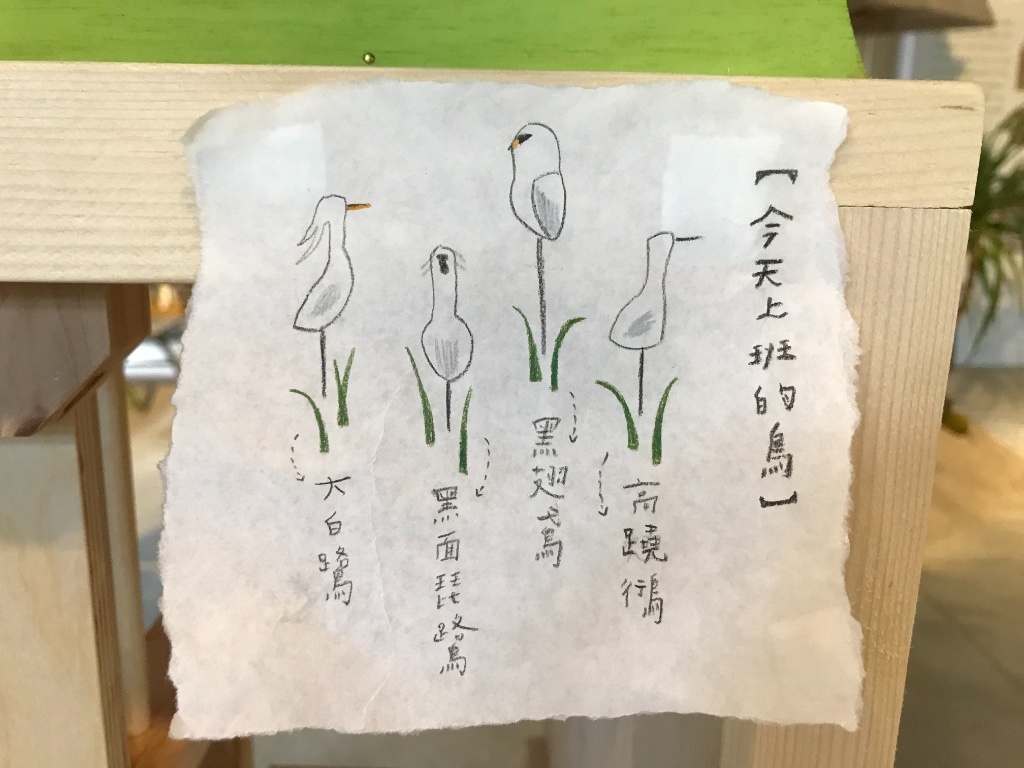 【今天上班的鳥】
高蹺鴴
黑翅鳶
黑面琵鷺
大白鷺